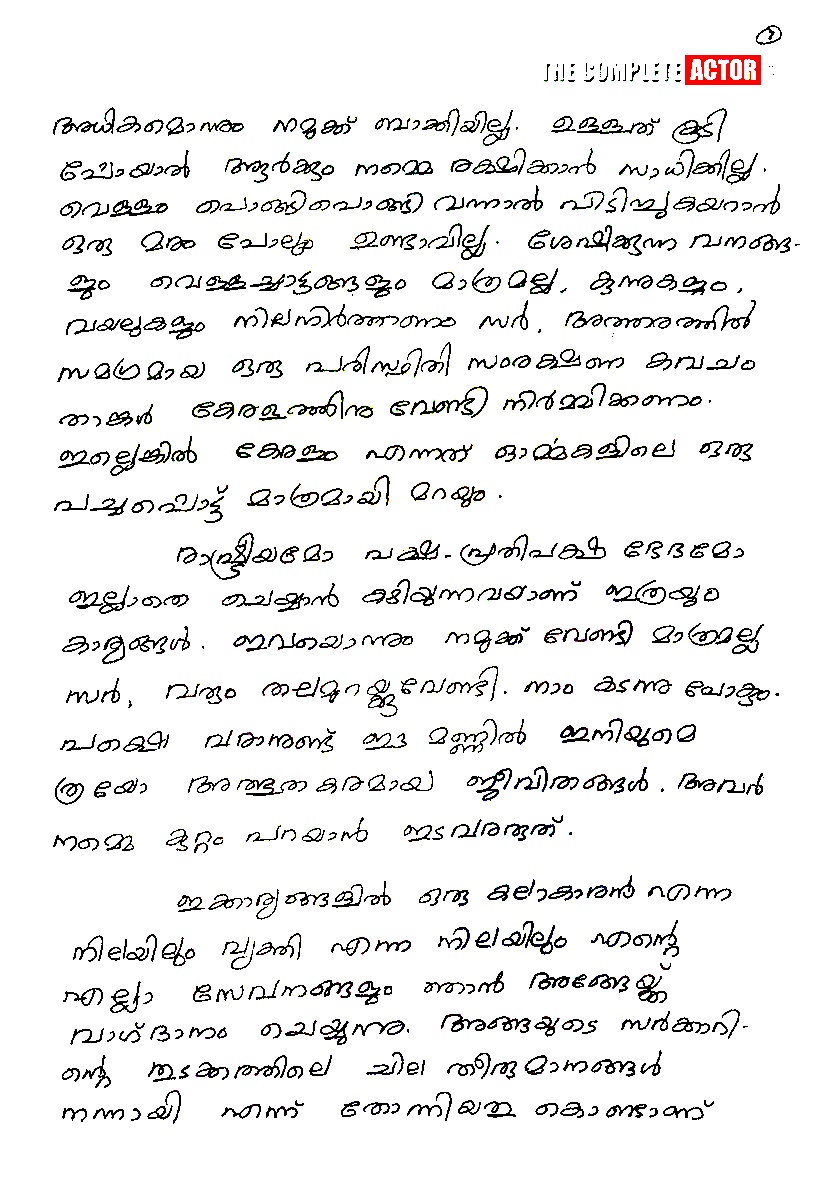 7
THE COMPLETE ACTOR
അധികമൊന്നും നമുക്ക് ബാക്കിയില്ല. ഉള്ളത് കൂടി
പോയാൽ ആർക്കും നമ്മെ രക്ഷിക്കാൻ സാധിക്കില്ല.
വെള്ളം പൊങ്ങിപൊങ്ങി വന്നാൽ പിടിച്ചുകയറാൻ
ഒരു മരം പോലും ഉണ്ടാവില്ല. ശേഷിക്കുന്ന വനങ്ങ-
ളും വെള്ളച്ചാട്ടങ്ങളും മാത്രമല്ല, കുന്നുകളും,
വയലുകളും നിലനിർത്തണം സർ, അത്തരത്തിൽ
സമഗ്രമായ ഒരു പരിസ്ഥിതി സംരക്ഷണ കവചം
താങ്കൾ കേരളത്തിനു വേണ്ടി നിർമ്മിക്കണം.
ഇല്ലെങ്കിൽ കേരളം എന്നത് ഓർമ്മകളിലെ ഒരു
പച്ചപ്പൊട്ട് മാത്രമായി മറയും.
രാഷ്ട്രീയമോ പക്ഷ-പ്രതിപക്ഷ ഭേദമോ
ഇല്ലാതെ ചെയ്യാൻ കഴിയുന്നവയാണ് ഇത്രയും
കാര്യങ്ങൾ. ഇവയൊന്നും നമുക്ക് വേണ്ടി മാത്രമല്ല
സർ, വരും തലമുറയ്ക്കുവേണ്ടി. നാം കടന്നു പോകും.
പക്ഷെ വരാനുണ്ട് ഈ മണ്ണിൽ ഇനിയുമെ
ത്രയോ അത്ഭുതകരമായ ജീവിതങ്ങൾ. അവർ
നമ്മെ കുറ്റം പറയാൻ ഇടവരരുത്.
ഇക്കാര്യങ്ങളിൽ ഒരു കലാകാരൻ എന്ന
നിലയിലും വ്യക്തി എന്ന നിലയിലും എന്റെ
എല്ലാ സേവനങ്ങളും ഞാൻ അങ്ങേയ്ക്ക്
വാഗ്ദാനം ചെയ്യുന്നു. അങ്ങയുടെ സർക്കാറി-
ന്റെ തുടക്കത്തിലെ ചില തീരുമാനങ്ങൾ
നന്നായി എന്ന് തോന്നിയതു കൊണ്ടാണ്